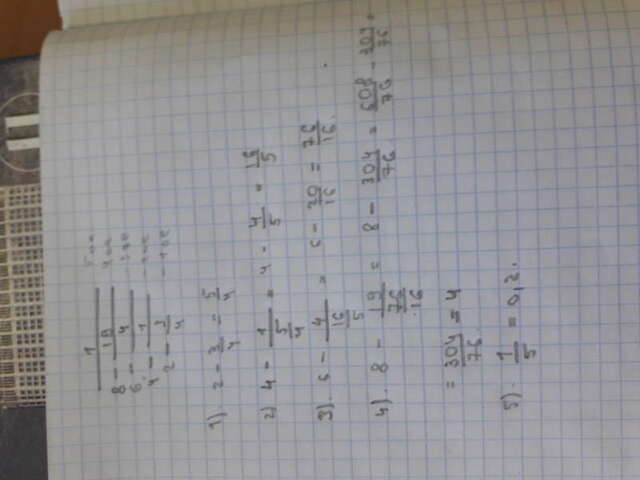 1
8 - 19
6 - 4
4 - 1
2 - 3/4
1). 2 - 3/4 = 5/4
2) 4 - 1/(5/4) = 4 - 4/5 = 16/5
3). 6 - 4/(16/5) = 6 - 20/16 = 76/16.
4). 8 - 19/(76/16) = 8 - 304/76 = 608/76 - 304/76 =
= 304/76 = 4
5). 1/5 = 0,2.